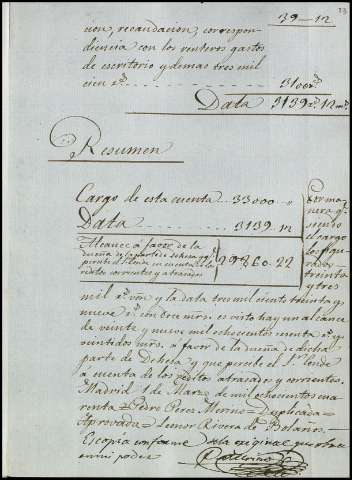 39-12
cion, recaudacion, correspon-
diencia con los renteros gastos
de escritorio y demas tres mil
cien r.s 3100 r.s
Data 3139 r.s 12 mrs
Resumen
Cargo de esta cuenta 33000 "
Data 3139 12
Alcance á favor de la
dueña de la parte de dehesa q.e
percibe el S. Conde en cuenta de
reditos corrientes y atrasados
29860.22
De ma-
nera q.e
siendo
el cargo
los figu-
rados
treinta
y tres
mil r.s von y la data tres mil ciento treinta y
nueve r.s con doce mrs. es visto hay un alcance
de veinte y nueve mil ochocientos sesenta r.s y
veintidos mrs. a favor de la dueña de dicha
parte de Dehesa y que percibe el S.r Conde
a cuenta de los reditos atrasados y corrientes.
Madrid 1 de Marzo de mil ochocientos cua
renta = Pedro Perez Merino = Duplicada =
Aprovada = Leonor Rivera de Bolaños. =
Es copia conforme a la original que obra
en mi poder